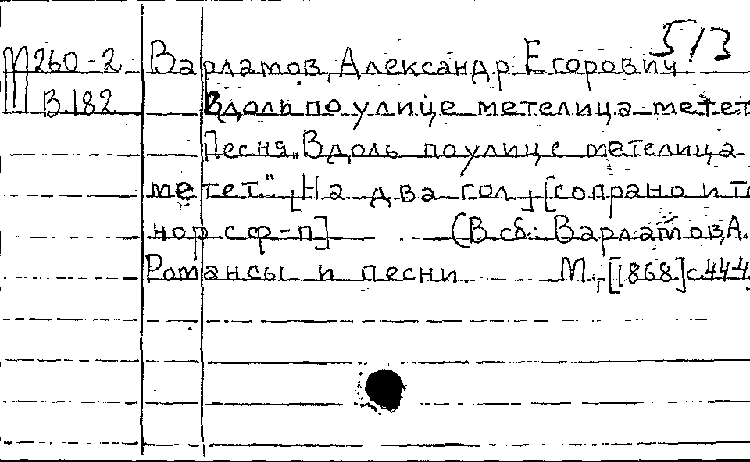 513
М260-2 Варламов, Александр Егорович
В182 Вдоль по улице метелица метет
Песня „Вдоль по улице метелица
метет." [На два гол.] [сопрано и те
нор с ф-п] (В сб.: Варламов, А.
Романсы и песни М., [1868] с.44-4